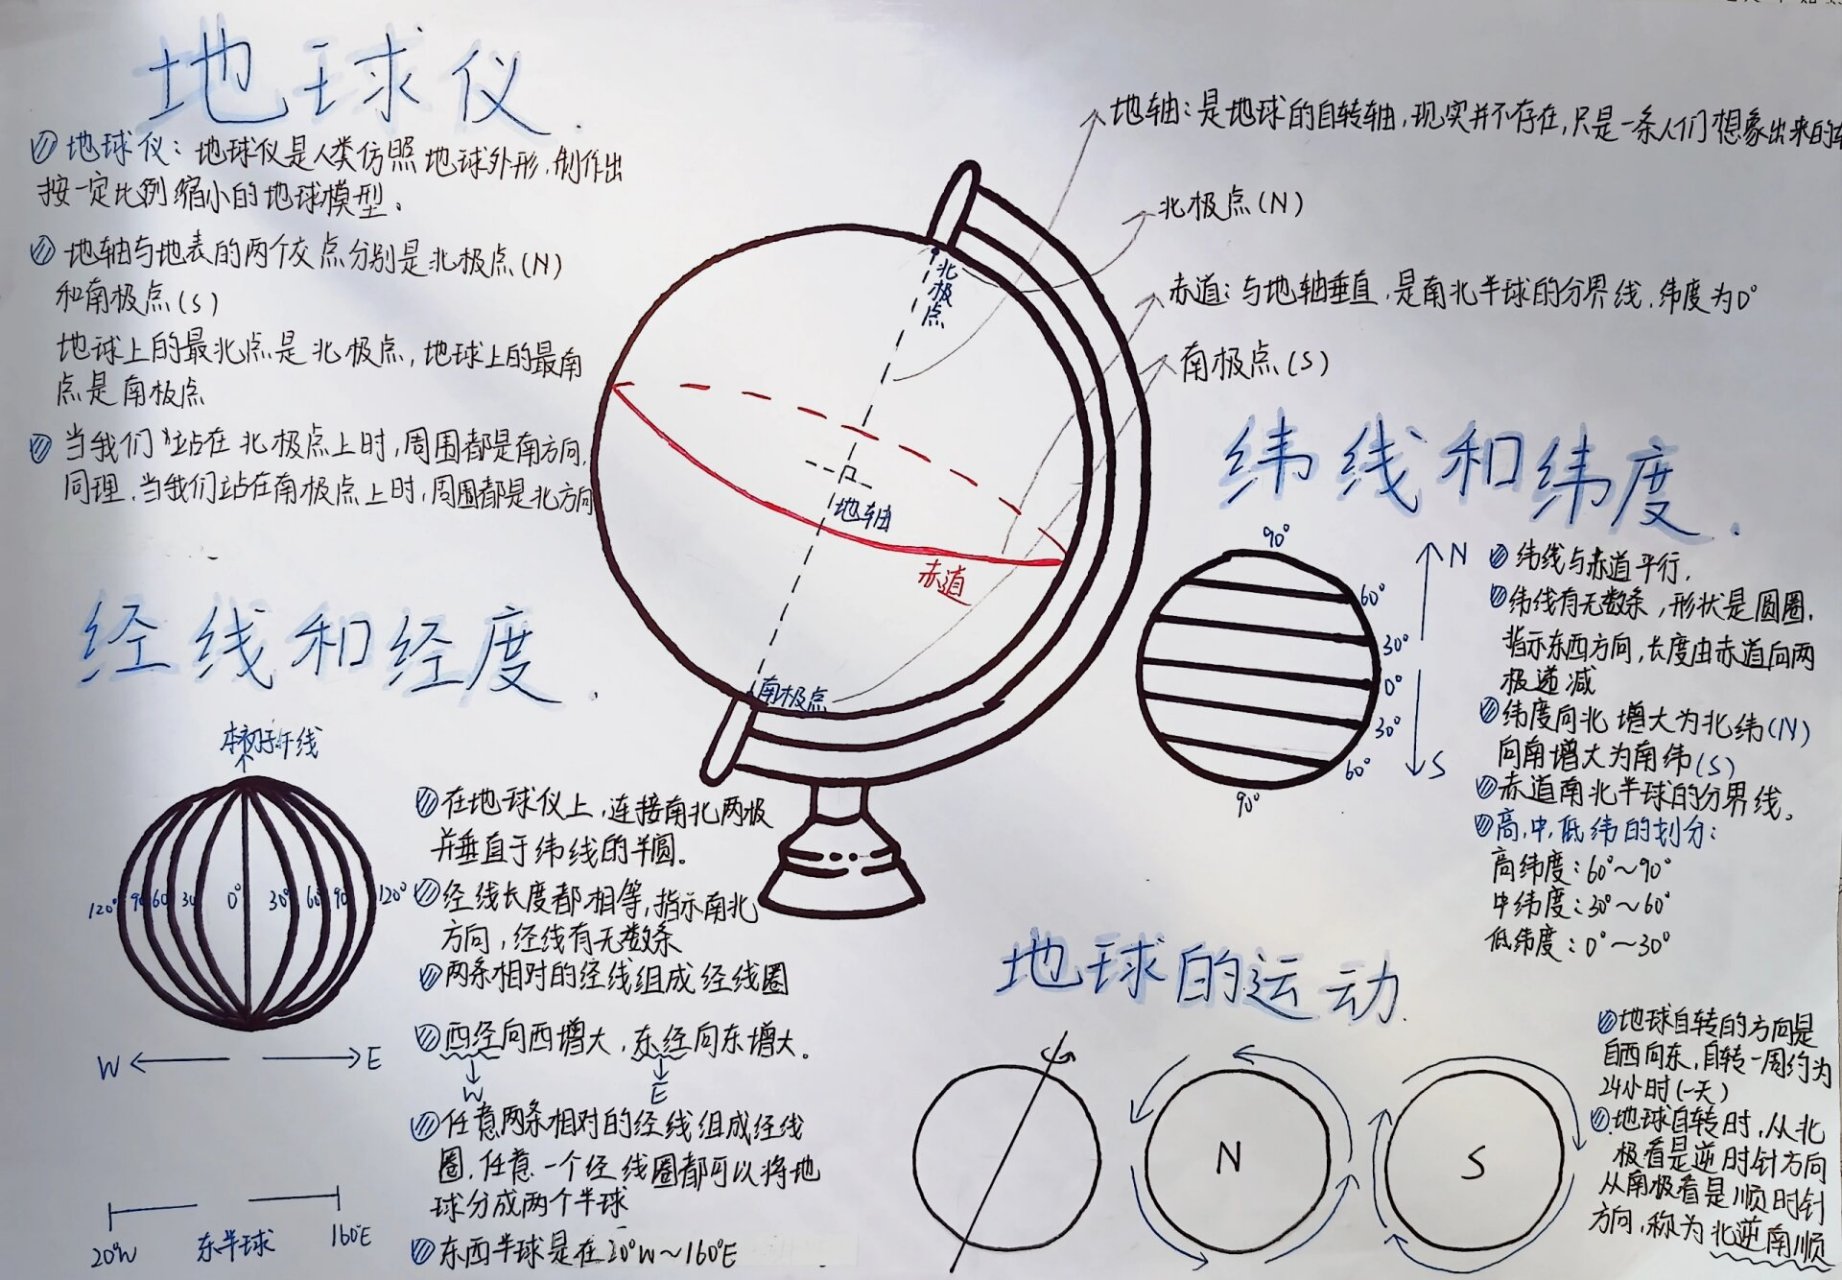 地球仪.
地球仪：地球仪是人类仿照地球外形，制作出
按一定比例缩小的地球模型。
地轴与地表的两个交点分别是北极点(N)
和南极点(S)
地球上的最北点是北极点，地球上的最南
点是南极点
当我们站在北极点上时，周围都是南方向，
同理，当我们站在南极点上时，周围都是北方向
地轴：是地球的自转轴，现实并不存在，只是一条人们想象出来的
北极点(N)
赤道：与地轴垂直，是南北半球的分界线，纬度为0°
南极点(S)
北极点
地轴
赤道
南极点
纬线和纬度.
90°
60°
30°
0°
30°
60°
90°
N
S
纬线与赤道平行.
纬线有无数条，形状是圆圈.
指示东西方向，长度由赤道向两
极递减
纬度向北增大为北纬(N)
向南增大为南纬(S)
赤道南北半球的分界线。
高，中，低纬的划分：
高纬度：60°～90°
中纬度：30°～60°
低纬度：0°～30°
经线和经度.
本初子午线
120° 90 60 30 0° 30° 60° 90 120°
W E
20°W 东半球 160°E
在地球仪上，连接南北两极
并垂直于纬线的半圆。
经线长度都相等，指示南北
方向，经线有无数条
两条相对的经线组成经线圈
西经向西增大，东经向东增大。
W E
任意两条相对的经线组成经线
圈，任意一个经线圈都可以将地
球分成两个半球
东西半球是在20°W～160°E
地球的运动.
N
S
地球自转的方向是
自西向东，自转一周约为
24小时(一天)
地球自转时，从北
极看是逆时针方向
从南极看是顺时针
方向，称为北逆南顺